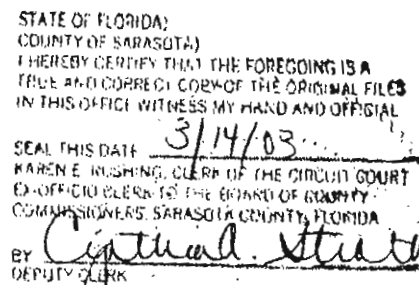 STATE OF FLORIDA)
COUNTY OF SARASOTA)
I HEREBY CERTIFY THAT THE FOREGOING IS A
TRUE AND CORRECT COPY OF THE ORIGINAL FILES
IN THIS OFFICE WITNESS MY HAND AND OFFICIAL
SEAL THIS DATE 3/14/03
KAREN E. RUSHING, CLERK OF THE CIRCUIT COURT
EX-OFFICIO CLERK TO THE BOARD OF COUNTY
COMMISSIONERS, SARASOTA COUNTY, FLORIDA
BY
DEPUTY CLERK